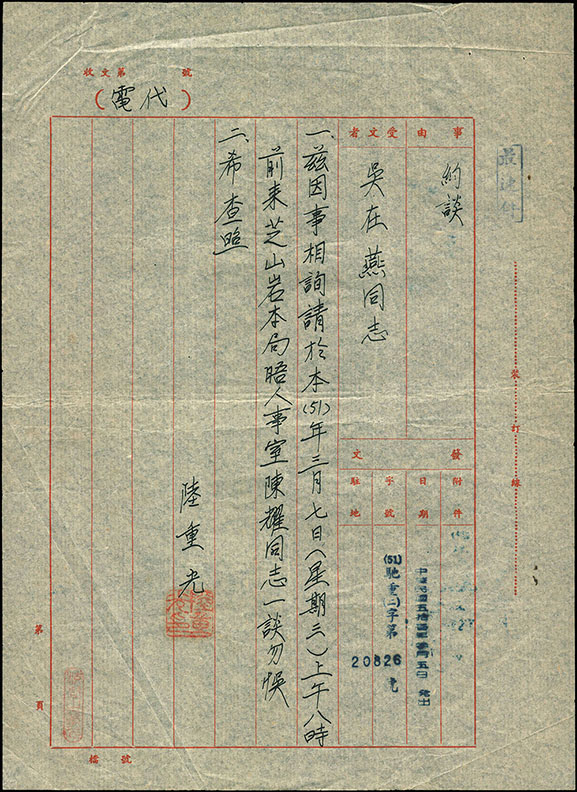 收文第 號
(代電)
最速件
事由
約談
受文者
吳在燕同志
發文
附件
日期
中華民國五拾壹年參月五日發出
字號
(51)馳重(二)字第20826號
駐地
一、茲因事相詢請於本(51)年三月七日(星期三)上午八時
前來芝山岩本局晤人事室陳耀同志一談勿悞
二、希查照
陸重光
陸重光印
裝訂線
第 頁
檔號